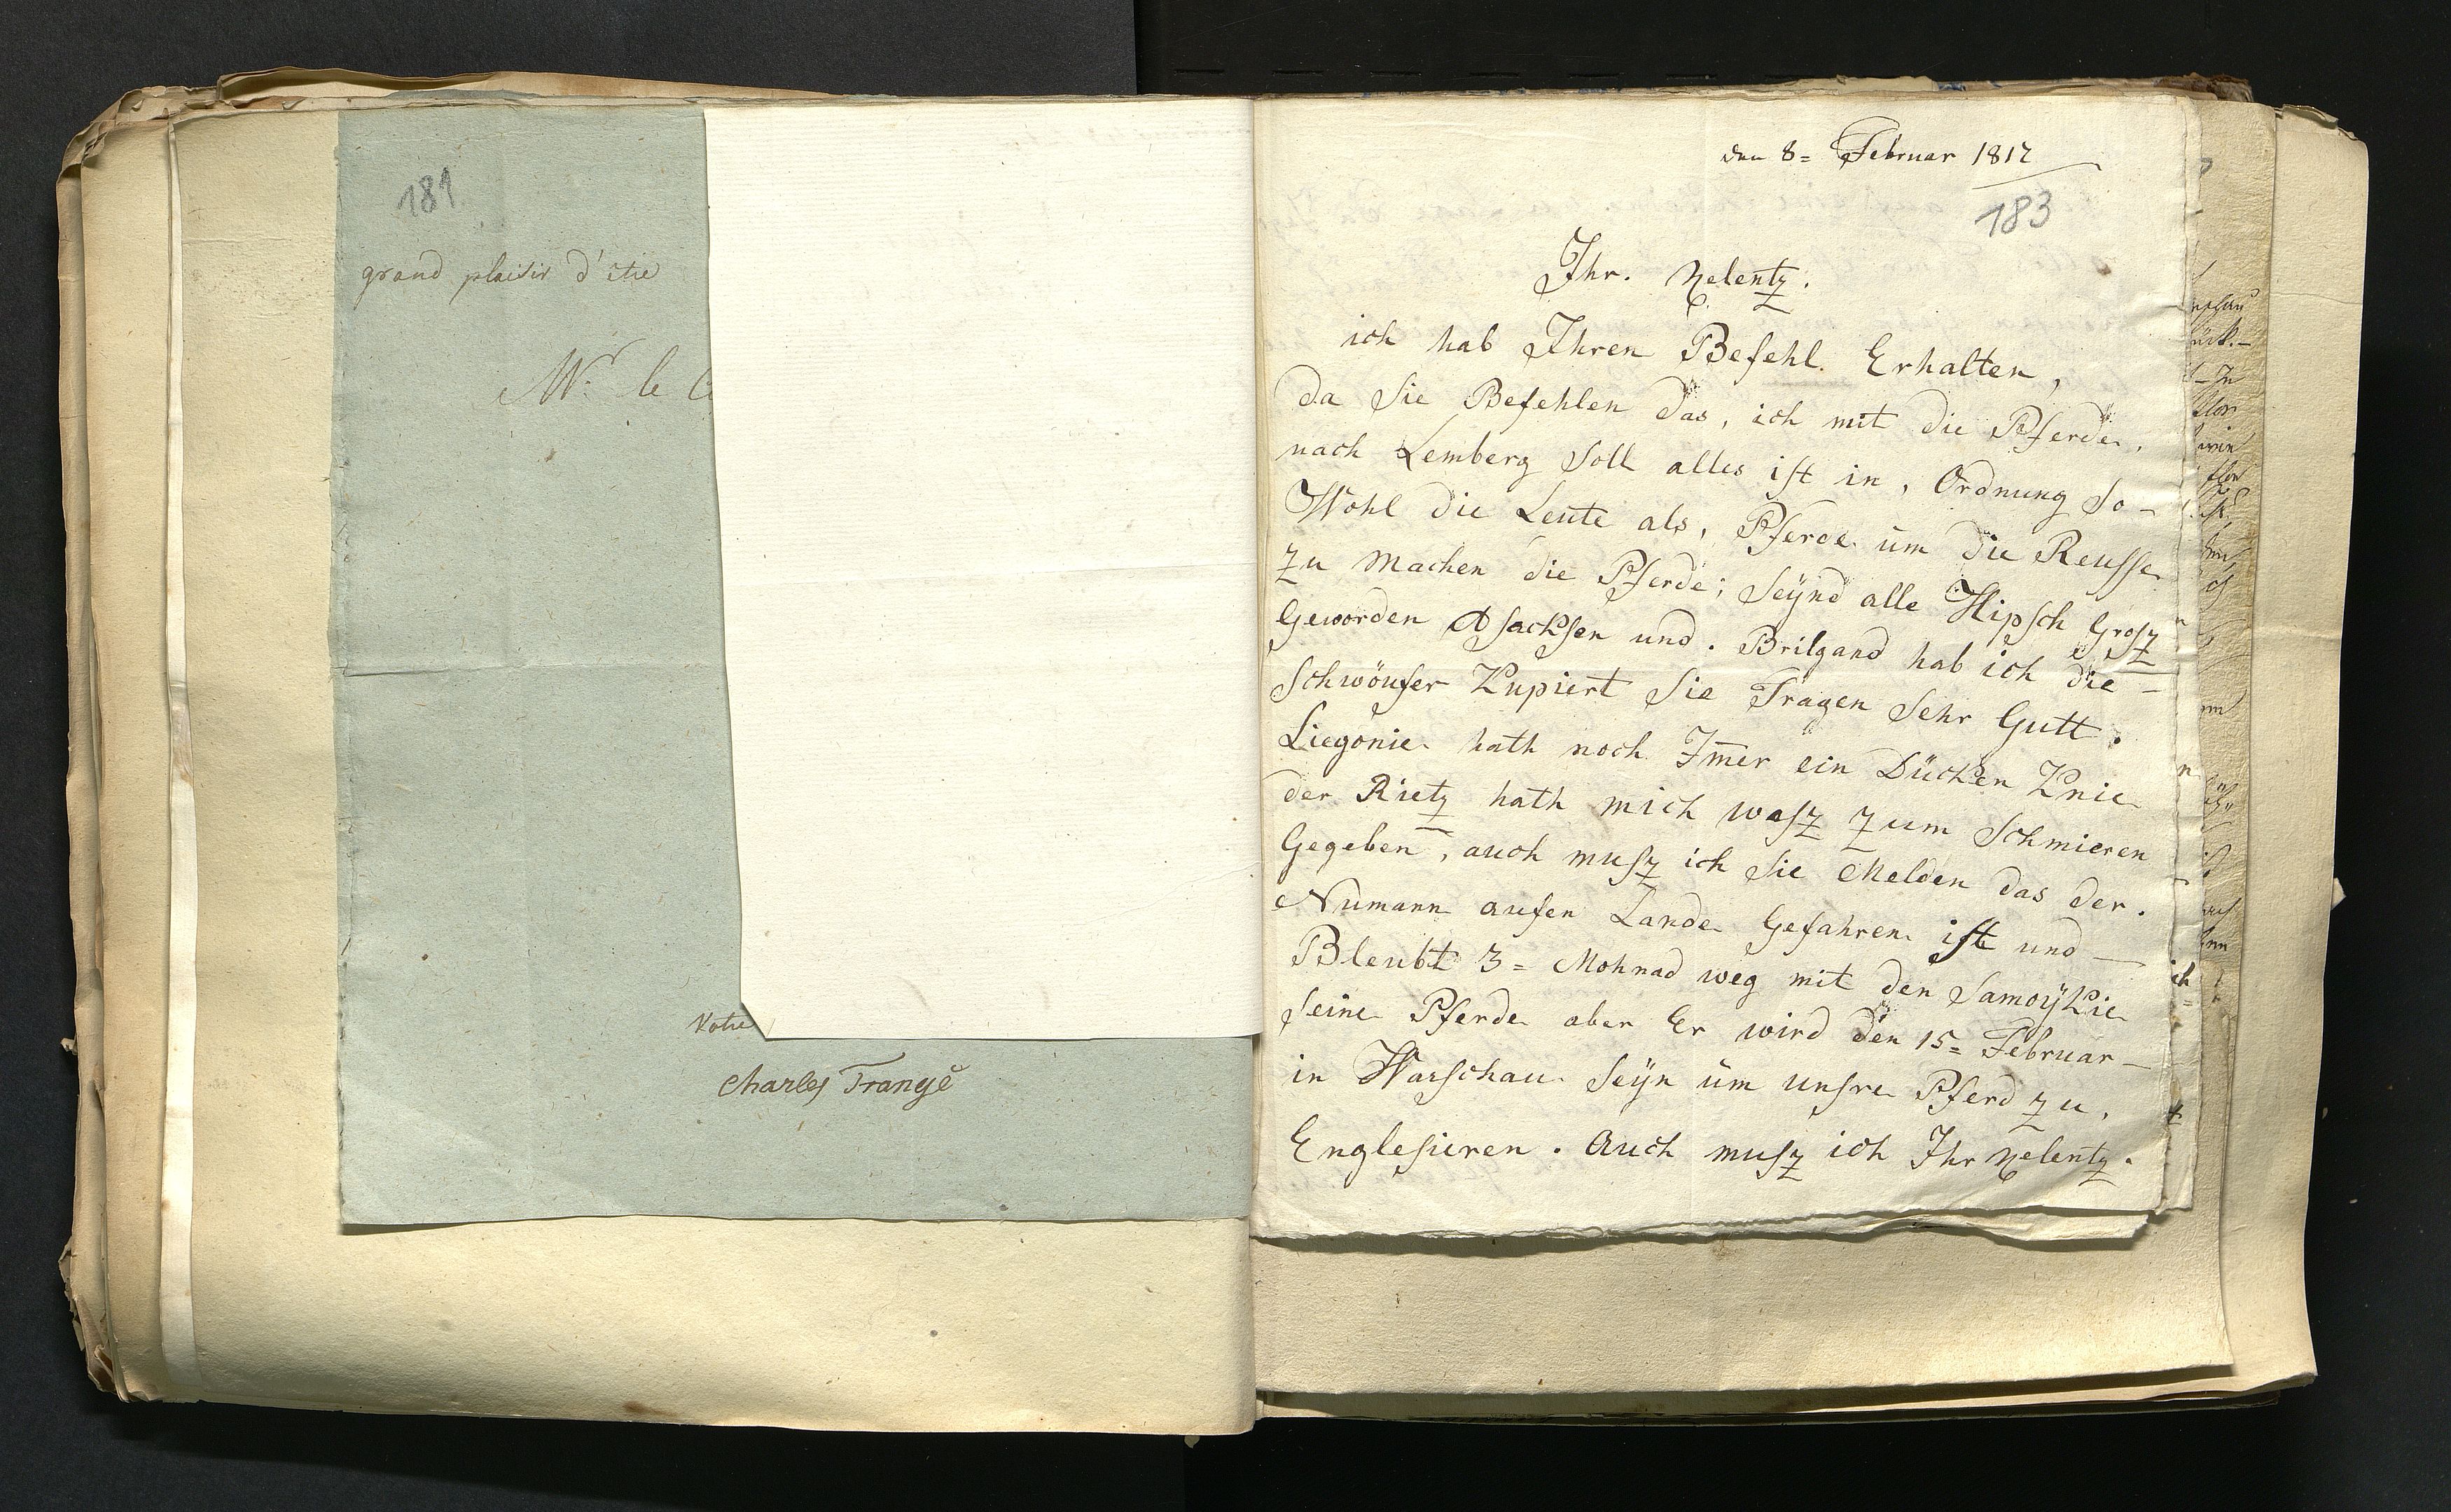 181
grand plaisir d'etre
Mr. le
Votre
Charles Trangé
den 8= Februar 1812
183
Ihr. Xelentz.
ich hab Ihren Befehl Erhalten,
da Sie Befehlen das, ich mit die Pferde,
nach Lemberg soll alles ist in, Ordnung so-
Wohl die Leute als, Pferde um die Reusse
zu Machen die Pferde; seÿnd alle Hipsch Grosz
Geworden Asachsen und. Brilgand hab ich die-
Schwöufer Kupiert Sie Tragen Sehr Gutt.
Liegonie hath noch Im̅er ein Dücken Knie
der Rietz hath mich wasz zum Schmieren
Gegeben, auch musz ich Sie Melden das der.
Numann aufen Lande Gefahren ist und-
Bleubt 3= Mohnad weg mit den Samoÿkie
seine Pferde aber Er wird den 15= Februar-
in Warschau Seÿn um unsre Pferd zu,
Englesieren. Auch musz ich Ihr Xelentz.